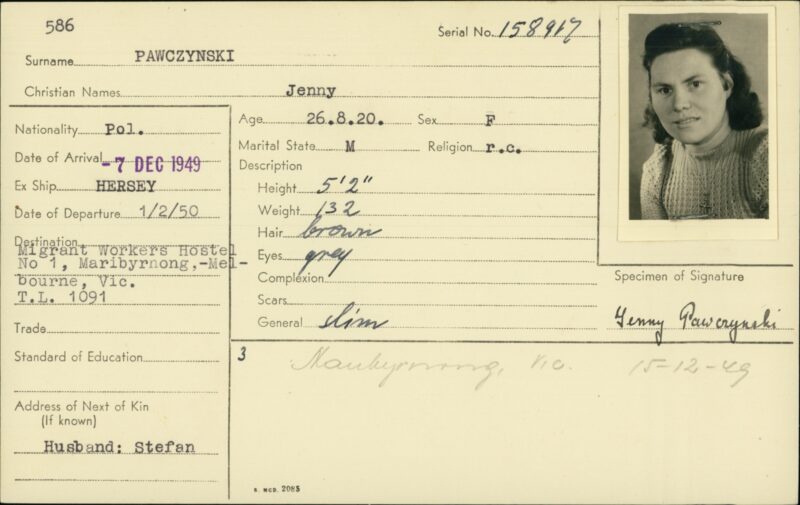 586
Serial No. 158917
Surname PAWCZYNSKI
Christian Names Jenny
Nationality Pol.
Date of Arrival -7 DEC 1949
Ex Ship HERSEY
Date of Departure 1/2/50
Destination
Migrant Workers Hostel
No 1, Maribyrnong,-Mel-
bourne, Vic.
T.L. 1091
Trade
Standard of Education
Address of Next of Kin
(If known)
Husband: Stefan
Age 26.8.20. Sex F
Marital State M Religion r.c.
Description
Height 5'2"
Weight 132
Hair brown
Eyes grey
Complexion
Scars
General slim
Specimen of Signature
Jenny Pawczynski
3
Maribyrnong, Vic. 15-12-49
2085